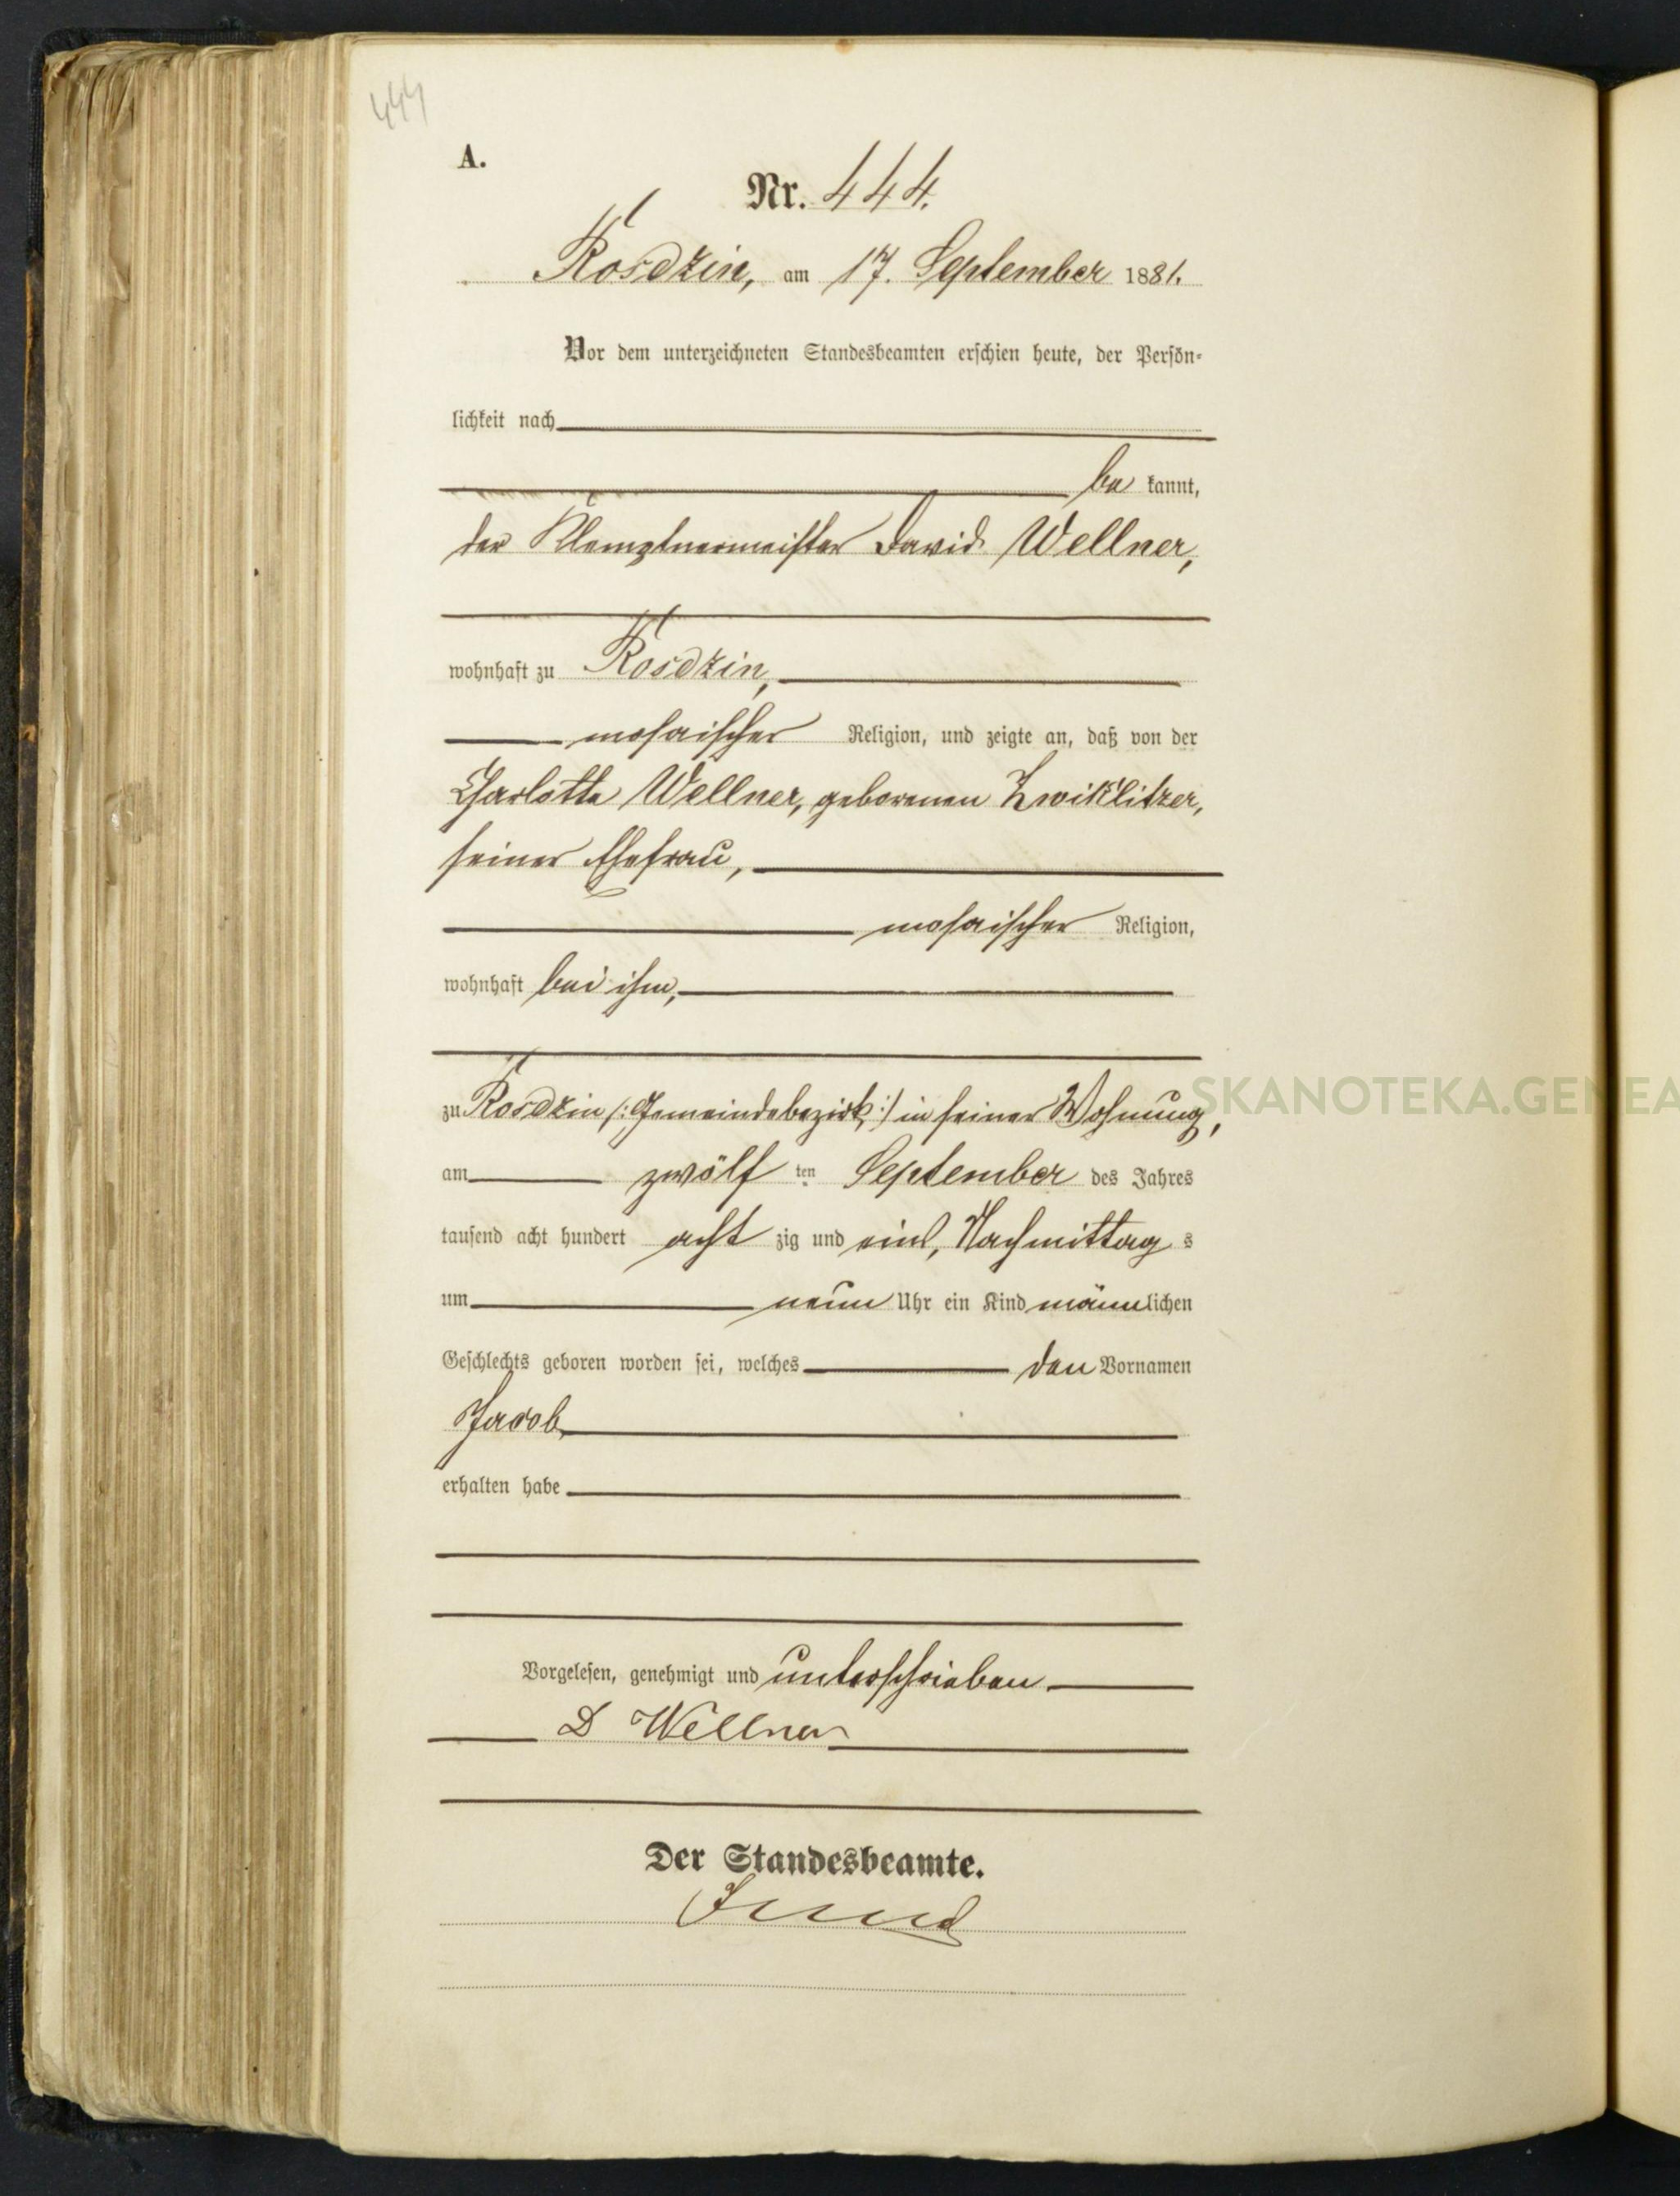 444
A.
Nr. 444.
Rosdzin, am 17. September 1881.
Vor dem unterzeichneten Standesbeamten erschien heute, der Persön-
lichkeit nach
be kannt,
der Klemptnermeister David Wellner,
wohnhaft zu Rosdzin,
mosaischer Religion, und zeigte an, daß von der
Charlotte Wellner, geborenen Zwiklitzer,
seiner Ehefrau,
mosaischer Religion,
wohnhaft bei ihm,
SKANOTEKA.GENEA
zu Rosdzin /: Gemeindebezirk :/ in seiner Wohnung,
am zwölf ten September des Jahres
tausend acht hundert acht zig und eins, Nachmittag s
um neun Uhr ein Kind männlichen
Geschlechts geboren worden sei, welches den Vornamen
Jacob,
erhalten habe
Vorgelesen, genehmigt und unterschrieben
D Wellner
Der Standesbeamte.